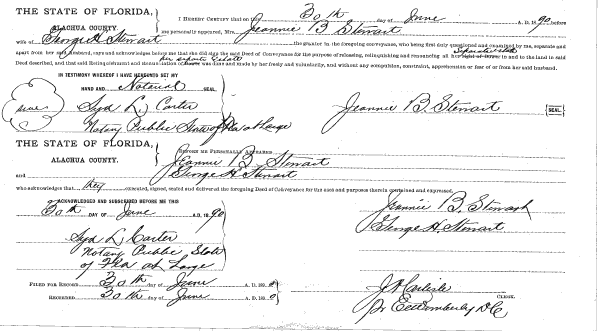 THE STATE OF FLORIDA,
ALACHUA COUNTY.
I HEREBY CERTIFY that on this 30th day of June A. D. 1890, before
me personally appeared, Mrs. Jeannie B Stewart
wife of George H Stewart the grantor in the foregoing conveyance, who being first duly questioned and examined by me, separate and
apart from her said husband, says and acknowledges before me that she did sign the said Deed of Conveyance for the purpose of releasing, relinquishing and renouncing all her right of dower in and to the land in said
Separate estate
Deed described, and that said Relinquishment and Renunciation of was done and made by her freely and voluntarily, and without any compulsion, constraint, apprehension or fear of or from her said husband.
her separate Estate
IN TESTIMONY WHEREOF I HAVE HEREUNTO SET MY
HAND AND Notarial SEAL.
Syd L. Carter
Notary Public State of Fla at Large
Jeannie B. Stewart [SEAL]
THE STATE OF FLORIDA,
ALACHUA COUNTY.
BEFORE ME PERSONALLY APPEARED
Jeannie B Stewart
and George H Stewart
who acknowledges that they executed, signed, sealed and delivered the foregoing Deed of Conveyance for the uses and purposes therein contained and expressed.
ACKNOWLEDGED AND SUBSCRIBED BEFORE ME THIS
30th DAY OF June A. D. 1890
Jeannie B. Stewart
George H. Stewart
Syd L Carter
Notary Public State
of Fla at Large
FILED FOR RECORD 30th day of June A. D. 1890
RECORDED 30th day of June A. D. 1890
J A Carlisle
CLERK.
D C